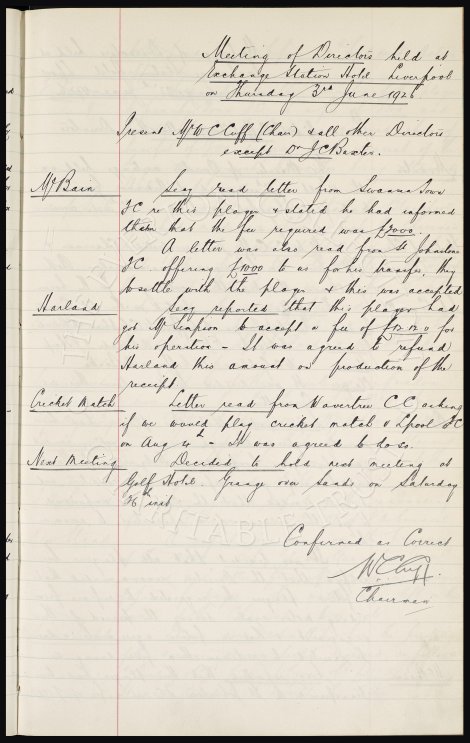 Meeting of Directors held at
Exchange Station Hotel Liverpool
on Thursday 3rd June 1926
Present Mr W C Cuff (Chair) & all other Directors
except Dr J C Baxter.
McBain
Secy read letter from Swansea Town
FC re this player & stated he had informed
them that the fee required was £2000.
A letter was also read from St Johnstone
FC. offering £1000 to us for his transfer, they
to settle with the player & this was accepted
Harland
Secy reported that this player had
got Mr Simpson to accept a fee of £12.12.0 for
his operation - It was agreed to refund
Harland this amount on production of the
receipt
Cricket Match
Letter read from Wavertree C.C. asking
if we would play cricket match v Lpool FC
on Aug 4th - It was agreed to do so.
Next Meeting
Decided to hold next meeting at
Golf Hotel. Grange over Sands on Saturday
26th inst
Confirmed as Correct
W C Cuff.
Chairman